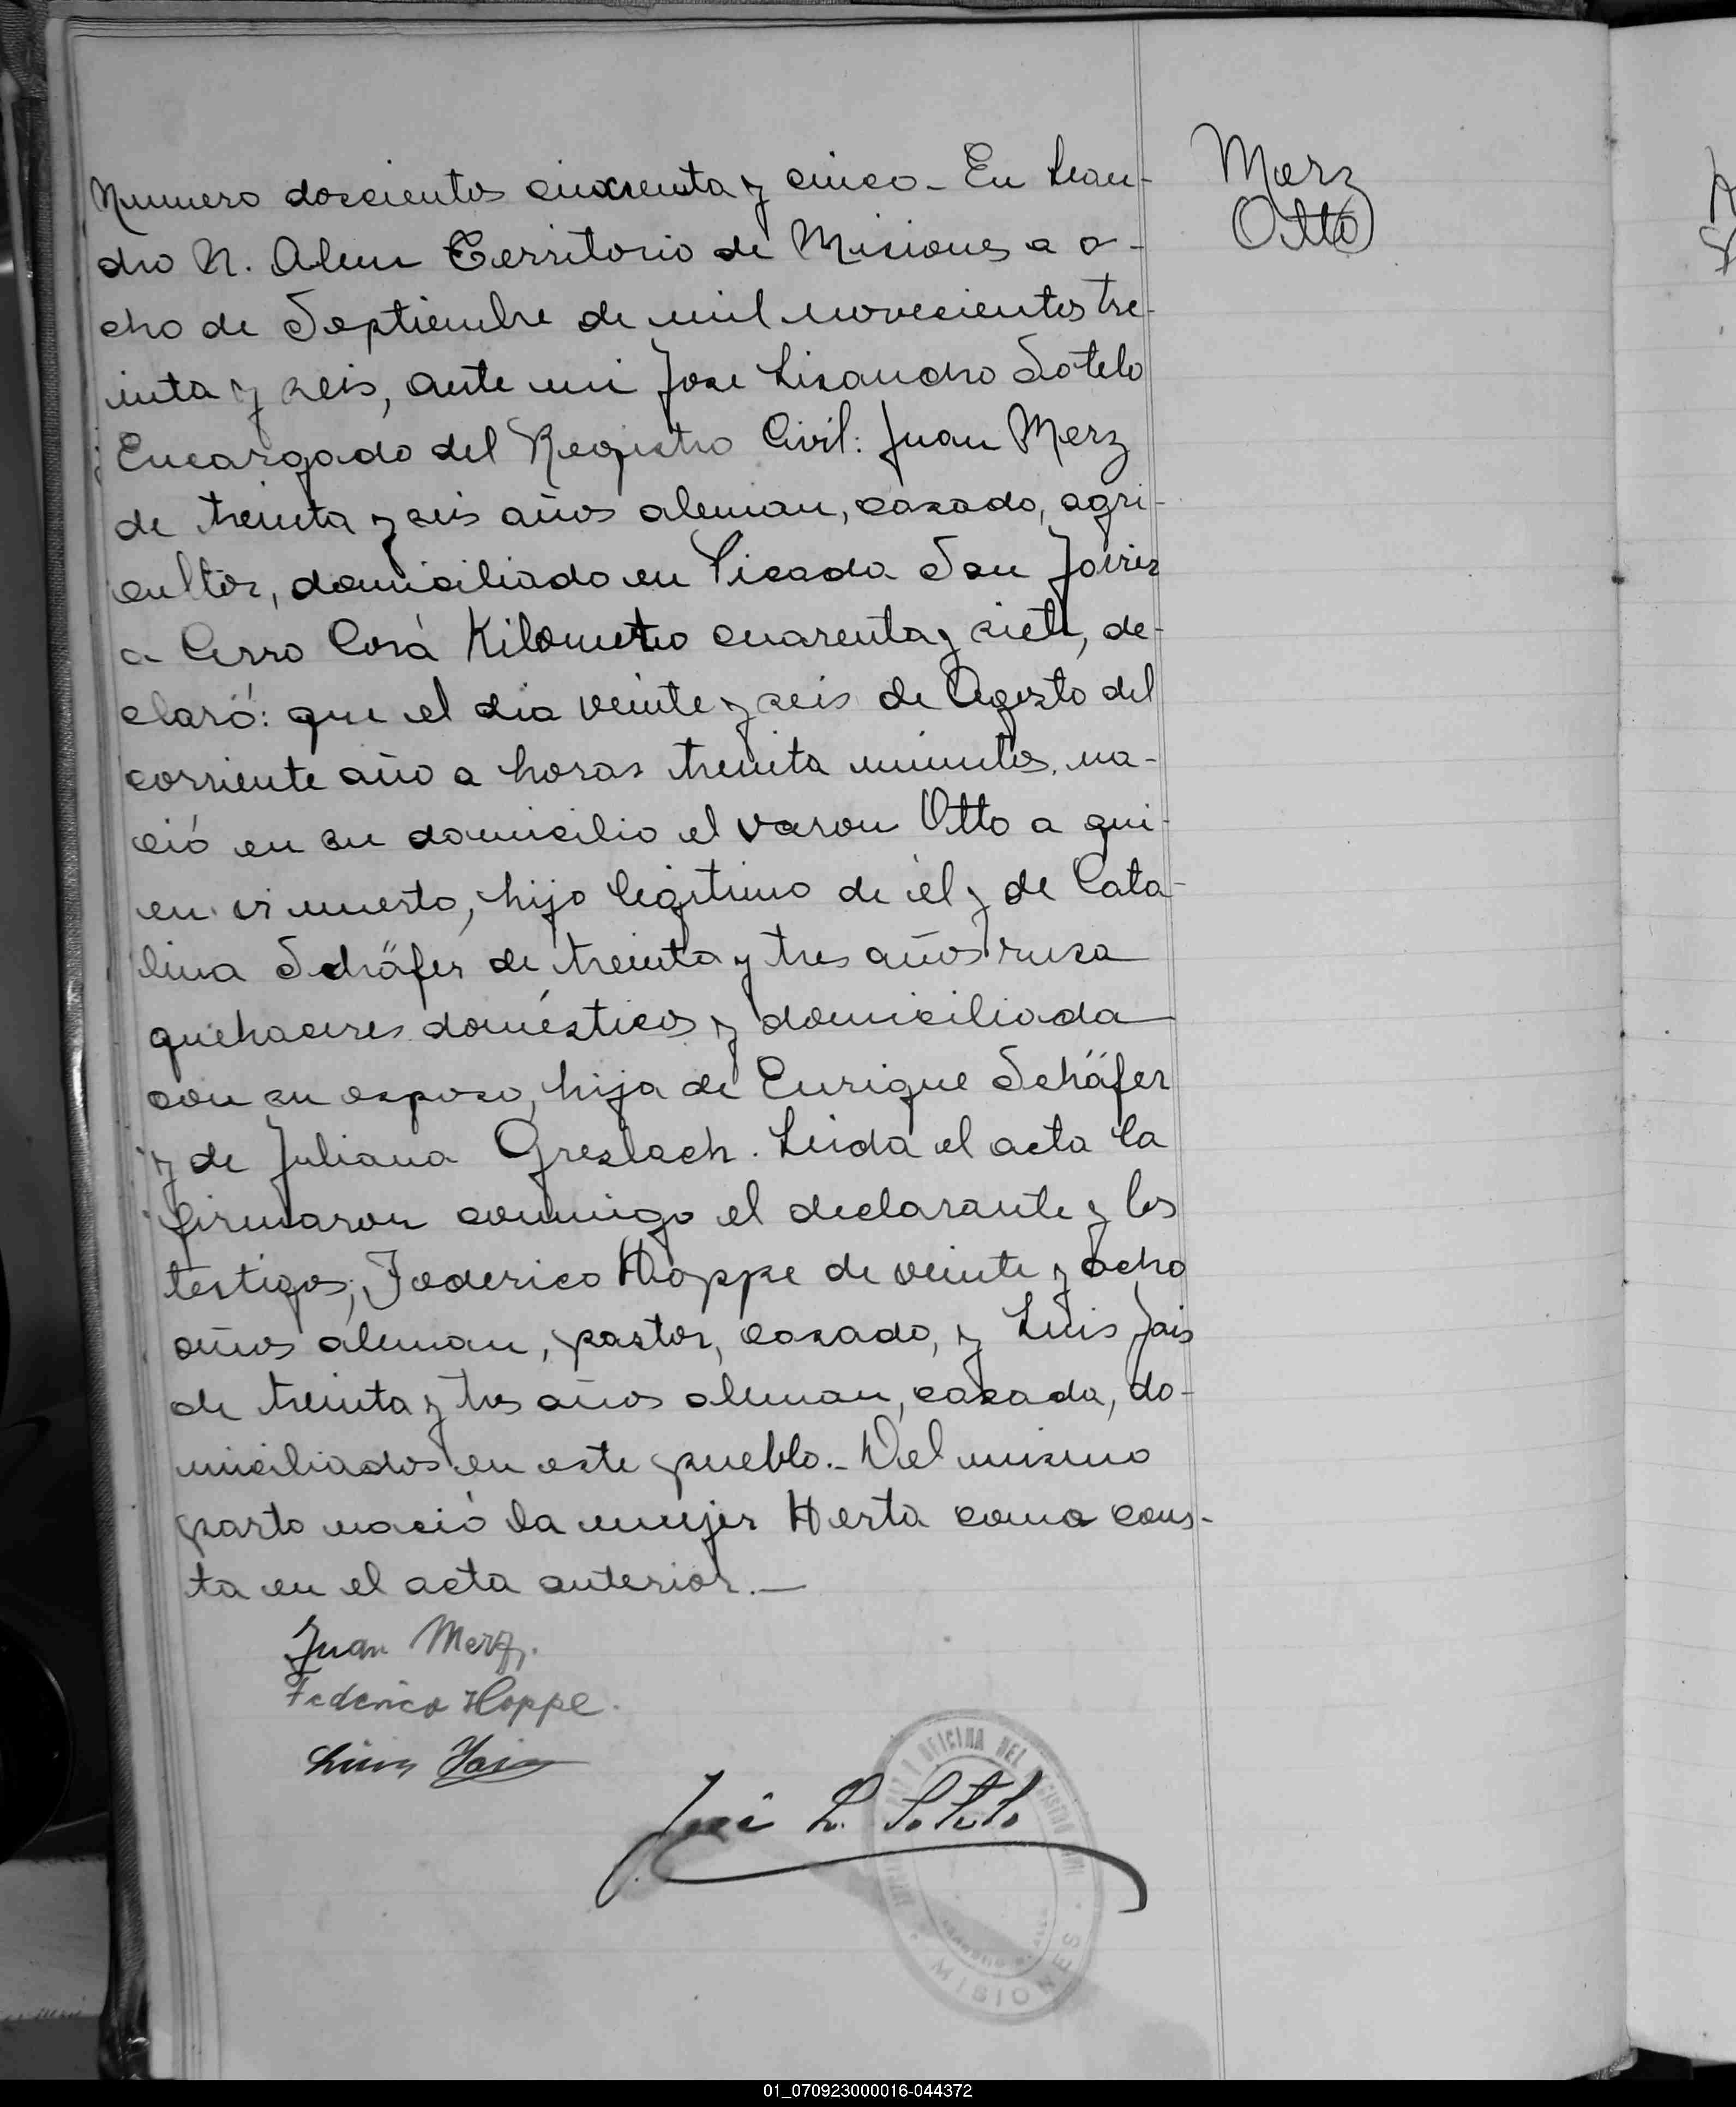 Numero doscientos cincuenta y cinco - En Lean-
dro N. Alem Territorio de Misiones a o-
cho de Septiembre de mil novecientos tre-
inta y seis, ante mi Jose Lisandro Sotelo
Encargado del Registro Civil: Juan Merz
de treinta y seis años aleman, casado, agri-
cultor, domiciliado en Picada San Javier
a Cerro Corá Kilometro cuarenta y siete, de-
claró: que el dia veinte y seis de Agosto del
corriente año a horas treinta minutos, na-
ció en su domicilio el varon Otto a qui-
en vi muerto, hijo legitimo de él y de Cata-
lina Schäfer de treinta y tres años rusa
quehaceres domésticos y domiciliada
con su esposo, hija de Enrique Schäfer
y de Juliana Greslach. Leida el acta la
firmaron conmigo el declarante y los
testigos; Federico Hoppe de veinte y ocho
años aleman, pastor, casado, y Luis Jais
de treinta y tres años aleman, casado, do-
miciliados en este pueblo.- Del mismo
parto nació la mujer Herta como cons-
ta en el acta anterior.—
Merz
Otto
Juan Merz.
Federico Hoppe.
Luis Jais
José L. Sotelo
OFICINA DEL REGISTRO CIVIL
MISIONES
01_070923000016-044372